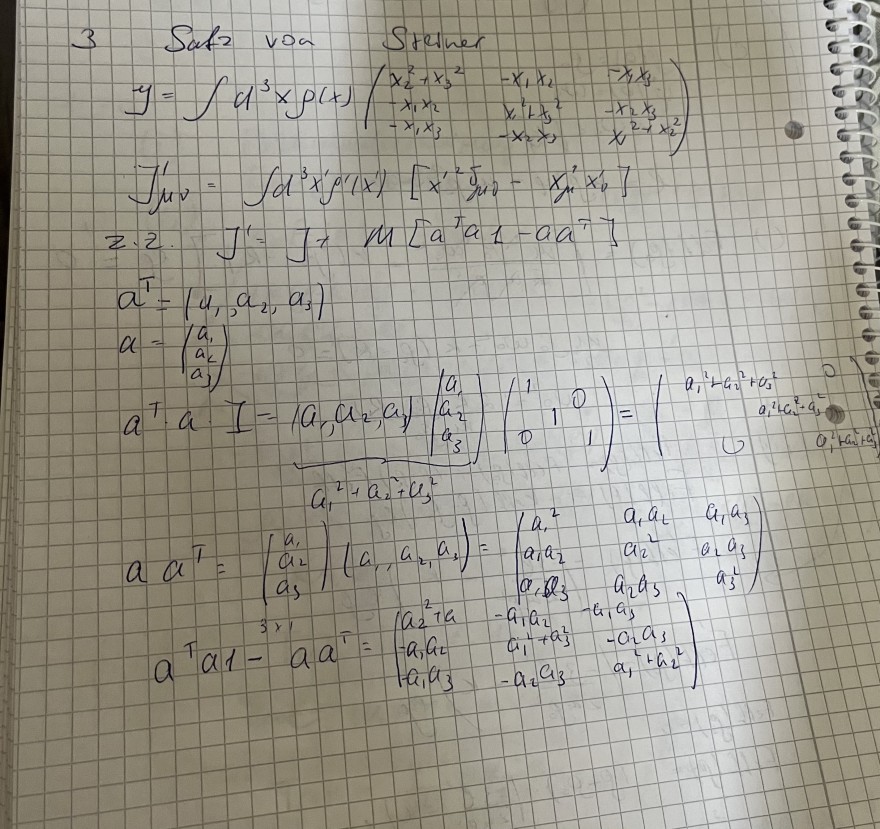 3 Satz von Steiner
J = ∫ d³x ρ(x) ( x₂²+x₃² -x₁x₂ -x₁x₃
-x₁x₂ x₁²+x₃² -x₂x₃
-x₁x₃ -x₂x₃ x₁²+x₂² )
J'μν = ∫d³x'ρ'(x') [x'²δμν - x'μ x'ν]
z.z. J' = J + M [aᵀa1 - aaᵀ]
aᵀ = (a₁, a₂, a₃)
a = ( a₁
a₂
a₃ )
aᵀ · a · I = (a₁, a₂, a₃) ( a₁ a₂ a₃ ) ( 1 0 1 0 1 ) = ( a₁²+a₂²+a₃² 0 a₁²+a₂²+a₃² 0 a₁²+a₂²+a₃²
a₁²+a₂²+a₃²
a aᵀ = ( a₁ a₂ a₃ ) (a₁, a₂, a₃) = ( a₁² a₁a₂ a₁a₃
a₁a₂ a₂² a₂a₃
a₁a₃ a₂a₃ a₃² )
3×1
aᵀa1 - aaᵀ = ( a₂²+a -a₁a₂ -a₁a₃
-a₁a₂ a₁²+a₃² -a₂a₃
-a₁a₃ -a₂a₃ a₁²+a₂² )